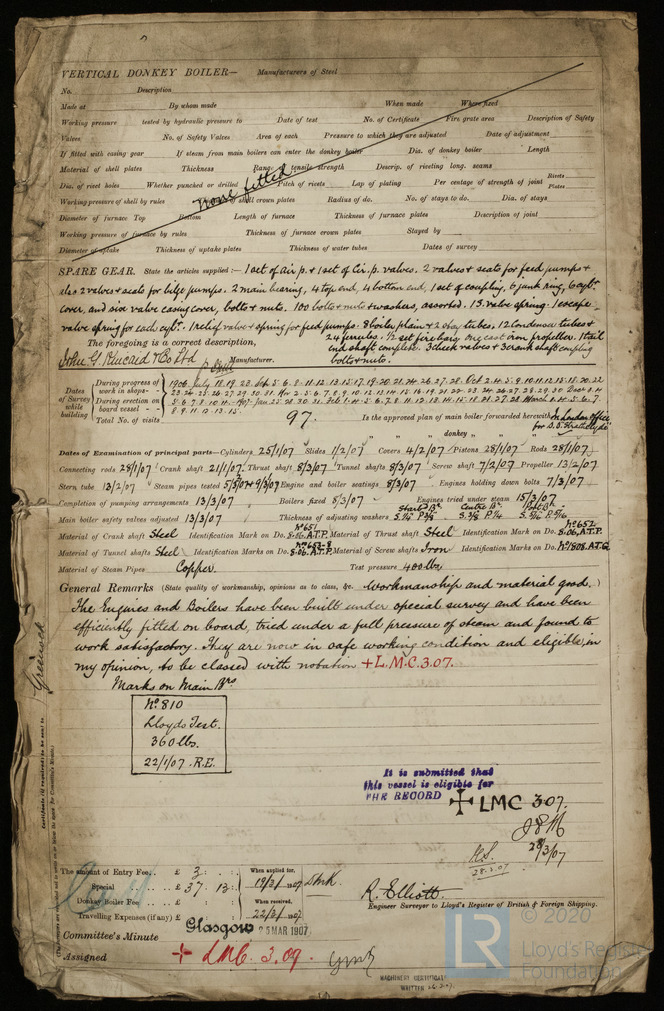 VERTICAL DONKEY BOILER— Manufacturers of Steel
No. Description
Made at By whom made When made Where fixed
Working pressure tested by hydraulic pressure to Date of test No. of Certificate Fire grate area Description of Safety
Valves No. of Safety Valves Area of each Pressure to which they are adjusted Date of adjustment
If fitted with casing gear If steam from main boilers can enter the donkey boiler Dia. of donkey boiler Length
Material of shell plates Thickness Range of tensile strength Descrip. of riveting long. seams
Dia. of rivet holes Whether punched or drilled Pitch of rivets Lap of plating Per centage of strength of joint Rivets Plates
none fitted
Working pressure of shell by rules of shell crown plates Radius of do. No. of stays to do. Dia. of stays
Diameter of furnace Top Bottom Length of furnace Thickness of furnace plates Description of joint
Working pressure of furnace by rules Thickness of furnace crown plates Stayed by
Diameter of uptake Thickness of uptake plates Thickness of water tubes Dates of survey
SPARE GEAR. State the articles supplied:— 1 set of air p. & 1 set of Cir. p. valves. 2 valves & seats for feed pumps &
also 2 valves & seats for bilge pumps. 2 main bearing, 4 top end, 4 bottom end, 1 set of coupling, 6 junk ring, 6 cylr
cover, and six valve casing cover, bolts & nuts. 100 bolts & nuts & washers, assorted. 1 S. valve spring. 1 escape
valve spring for each cylr. 1 relief valve & spring for feed pumps. 8 boiler plain & 2 stay tubes. 12 Condenser tubes &
24 ferrules. ½ set fire bars, one cast iron propeller. 1 tail
end shaft complete. 3 check valves & 3 crank shaft coupling
bolts & nuts.
The foregoing is a correct description,
John G. Kincaid & Co Ltd Manufacturer.
Dates of Survey while building
During progress of work in shops - - 1906 July 18. 19. 23. Sep 5. 6. 8. 11. 12. 13. 15. 17. 19. 20. 21. 24. 26. 27. 28. Oct 2. 4. 5. 9. 10. 11. 12. 15. 18. 20. 22
During erection on board vessel - - -
Total No. of visits 97.
Is the approved plan of main boiler forwarded herewith In London Office for S.S. Strathclyde
" " " donkey " " "
Dates of Examination of principal parts—Cylinders 25/1/07 Slides 1/2/07 Covers 4/2/07 Pistons 28/1/07 Rods 28/1/07
Connecting rods 29/1/07 Crank shaft 21/1/07 Thrust shaft 8/3/07 Tunnel shafts 8/3/07 Screw shaft 7/2/07 Propeller 13/2/07
Stern tube 13/2/07 Steam pipes tested 5/3/07 & 9/3/07 Engine and boiler seatings 8/3/07 Engines holding down bolts 7/3/07
Completion of pumping arrangements 13/3/07 Boilers fixed 8/3/07 Engines tried under steam 15/3/07
Main boiler safety valves adjusted 13/3/07 Thickness of adjusting washers
Material of Crank shaft Steel Identification Mark on Do. No 651 8.06. A.T.P. Material of Thrust shaft Steel Identification Mark on Do. No 652 8.06. A.T.P.
Material of Tunnel shafts Steel Identification Marks on Do. 8.06. A.T.P. Material of Screw shafts Iron Identification Marks on Do. No 1808. A.T.G.
Material of Steam Pipes Copper. Test pressure 400 lbs.
General Remarks (State quality of workmanship, opinions as to class, &c. Workmanship and material good.)
The Engines and Boilers have been built under special survey and have been
efficiently fitted on board, tried under a full pressure of steam and found to
work satisfactory. They are now in safe working condition and eligible, in
my opinion, to be classed with notation + L.M.C. 3.07.
Marks on Main Brs
No 810
Lloyds Test.
360 lbs.
22/1/07. R.E.
Greenock
It is submitted that
this vessel is eligible for
THE RECORD + LMC 3.07.
28/3/07
28.3.07
The amount of Entry Fee . . £ 3 : : When applied for,
Special . . . £ 37 : 13 : 19/3/1907
Donkey Boiler Fee . . . £ : : When received,
Travelling Expenses (if any) £ : : 22/3/1907
R. Elliott.
Engineer Surveyor to Lloyd's Register of British & Foreign Shipping.
Committee's Minute Glasgow 25 MAR 1907
Assigned + LMC. 3.07.
MACHINERY CERTIFICATE
WRITTEN
© 2020
LR
Lloyd's Register
Foundation